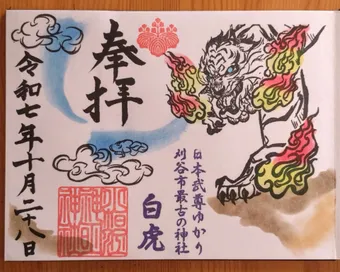 奉拝
日本武尊ゆかり
刈谷市最古の神社
白虎
令和七年十月二十八日